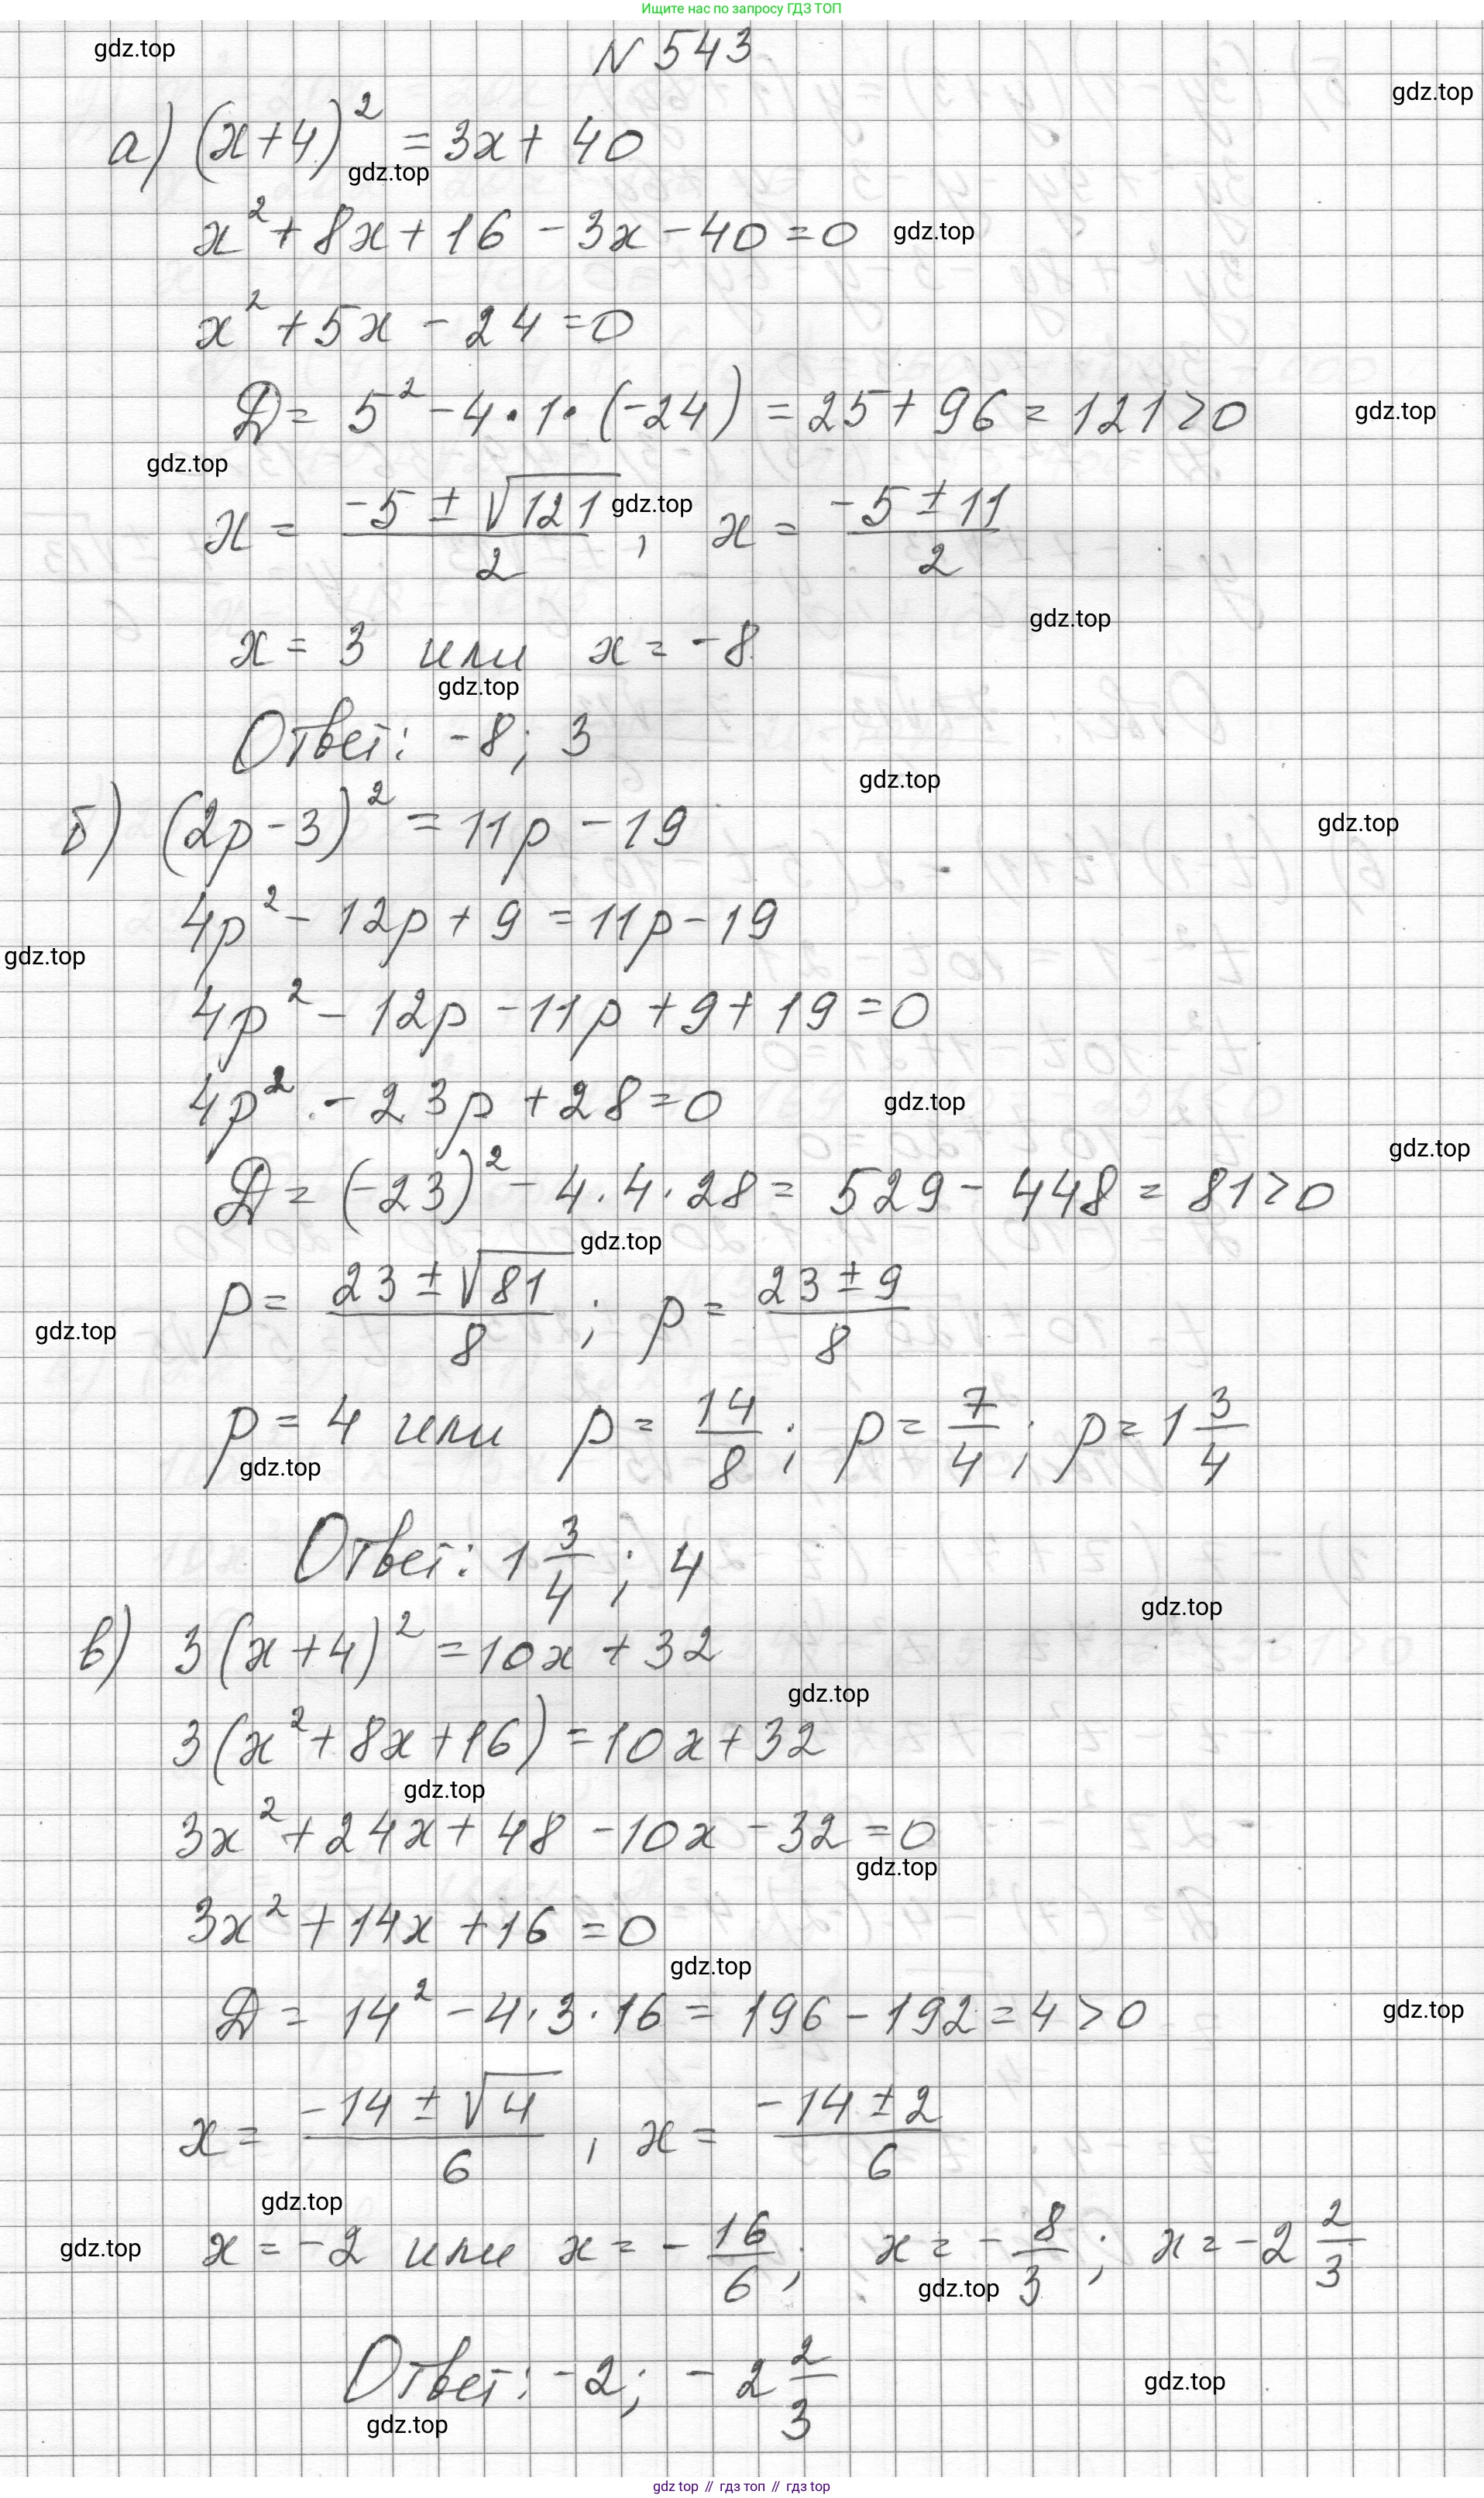 Ищите нас по запросу ГДЗ ТОП
gdz.top
N 543
gdz.top
а) (x+4)² = 3x + 40
gdz.top
x² + 8x + 16 - 3x - 40 = 0
gdz.top
x² + 5x - 24 = 0
D = 5² - 4·1·(-24) = 25 + 96 = 121 > 0
gdz.top
gdz.top
x = (-5 ± √121)/2 ; x = (-5 ± 11)/2
gdz.top
gdz.top
x = 3 или x = -8
gdz.top
Ответ: -8; 3
gdz.top
б) (2p - 3)² = 11p - 19
gdz.top
4p² - 12p + 9 = 11p - 19
gdz.top
4p² - 12p - 11p + 9 + 19 = 0
4p² - 23p + 28 = 0
gdz.top
gdz.top
D = (-23)² - 4·4·28 = 529 - 448 = 81 > 0
gdz.top
p = (23 ± √81)/8 ; p = (23 ± 9)/8
gdz.top
p = 4 или p = 14/8 ; p = 7/4 ; p = 1 3/4
gdz.top
Ответ: 1 3/4 ; 4
gdz.top
в) 3(x+4)² = 10x + 32
gdz.top
3(x² + 8x + 16) = 10x + 32
gdz.top
3x² + 24x + 48 - 10x - 32 = 0
gdz.top
3x² + 14x + 16 = 0
gdz.top
D = 14² - 4·3·16 = 196 - 192 = 4 > 0
gdz.top
x = (-14 ± √4)/6 , x = (-14 ± 2)/6
gdz.top
gdz.top
x = -2 или x = - 16/6 ; x = - 8/3 ; x = -2 2/3
gdz.top
Ответ: -2; -2 2/3
gdz.top
gdz.top
gdz top // гдз топ // гдз top